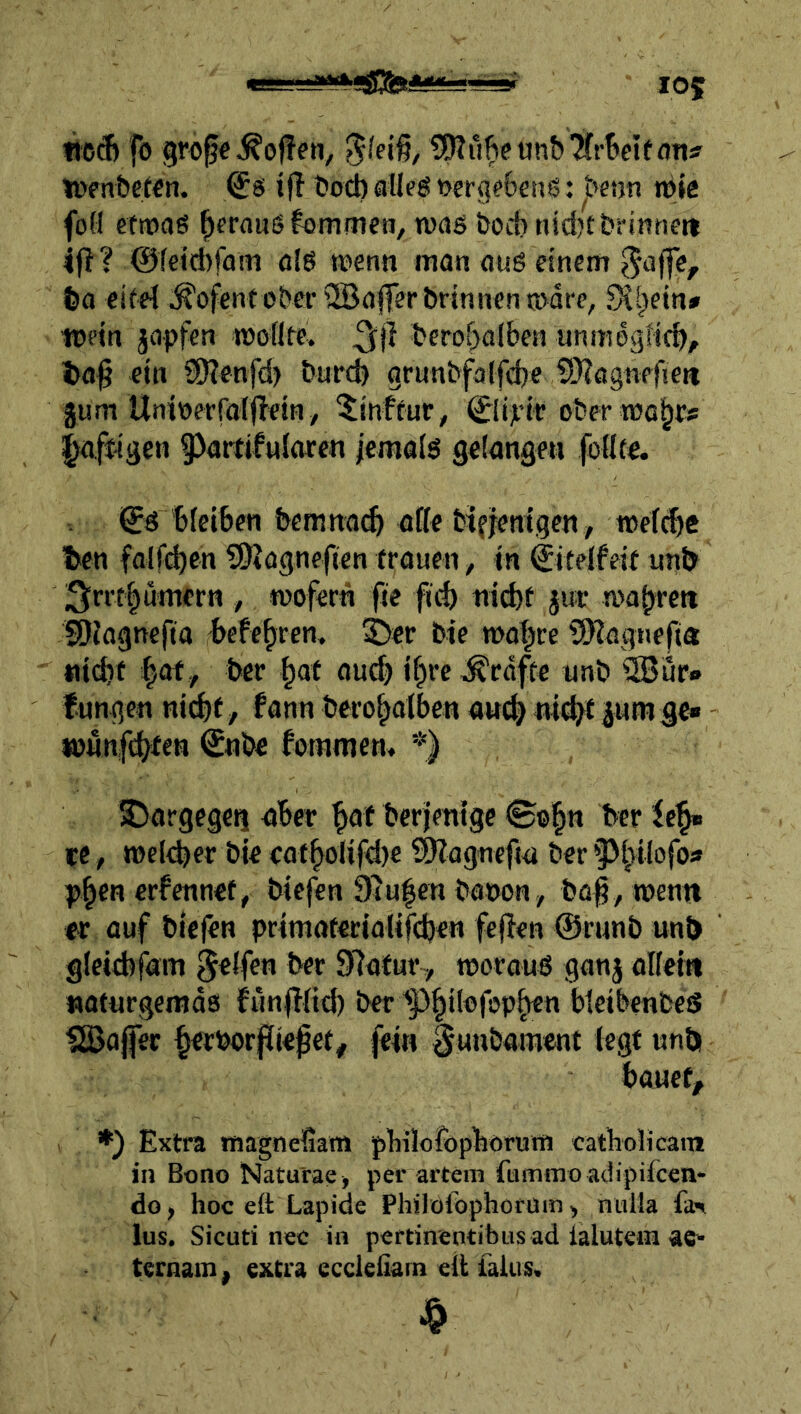 105
noch so große Kosten, Fleiß, Mühe und Arbeit an=
wendeten. Es ist doch alles vergebens: denn wie
soll etwas heraus kommen, was doch nicht drinnen
ist? Gleichsam als wenn man aus einem Fasse,
da eitel Kofent oder Wasser drinnen wäre, Rhein=
wein zapfen wollte. Ist derohalben unmöglich,
daß ein Mensch durch grundfalsche Magnesien
zum Universalstein, Tinktur, Elixir oder wahr=
haftigen Partikularen jemals gelangen sollte.
Es bleiben demnach alle diejenigen, welche
den falschen Magnesien trauen, in Eitelkeit und
Irrthümern , wofern sie sich nicht zur wahren
Magnesia bekehren. Der die wahre Magnesia
nicht hat, der hat auch ihre Kräfte und Wür=
kungen nicht, kann derohalben auch nicht zum ge=
wünschten Ende kommen. *)
Dargegen aber hat derjenige Sohn der Leh=
re, welcher die catholische Magnesia der Philoso=
phen erkennet, diesen Nutzen davon, daß, wenn
er auf diesen primaterialischen festen Grund und
gleichsam Felsen der Natur, woraus ganz allein
naturgemäs künstlich der Philosophen bleibendes
Wasser hervorfließet, sein Fundament legt und
bauet,
*) Extra magnesiam philosophorum catholicam
in Bono Naturae, per artem summo adipiscen-
do, hoc est Lapide Philosophorum, nulla sa-
lus. Sicuti nec in pertinentibus ad salutem ae-
ternam, extra ecclesiam est salus.